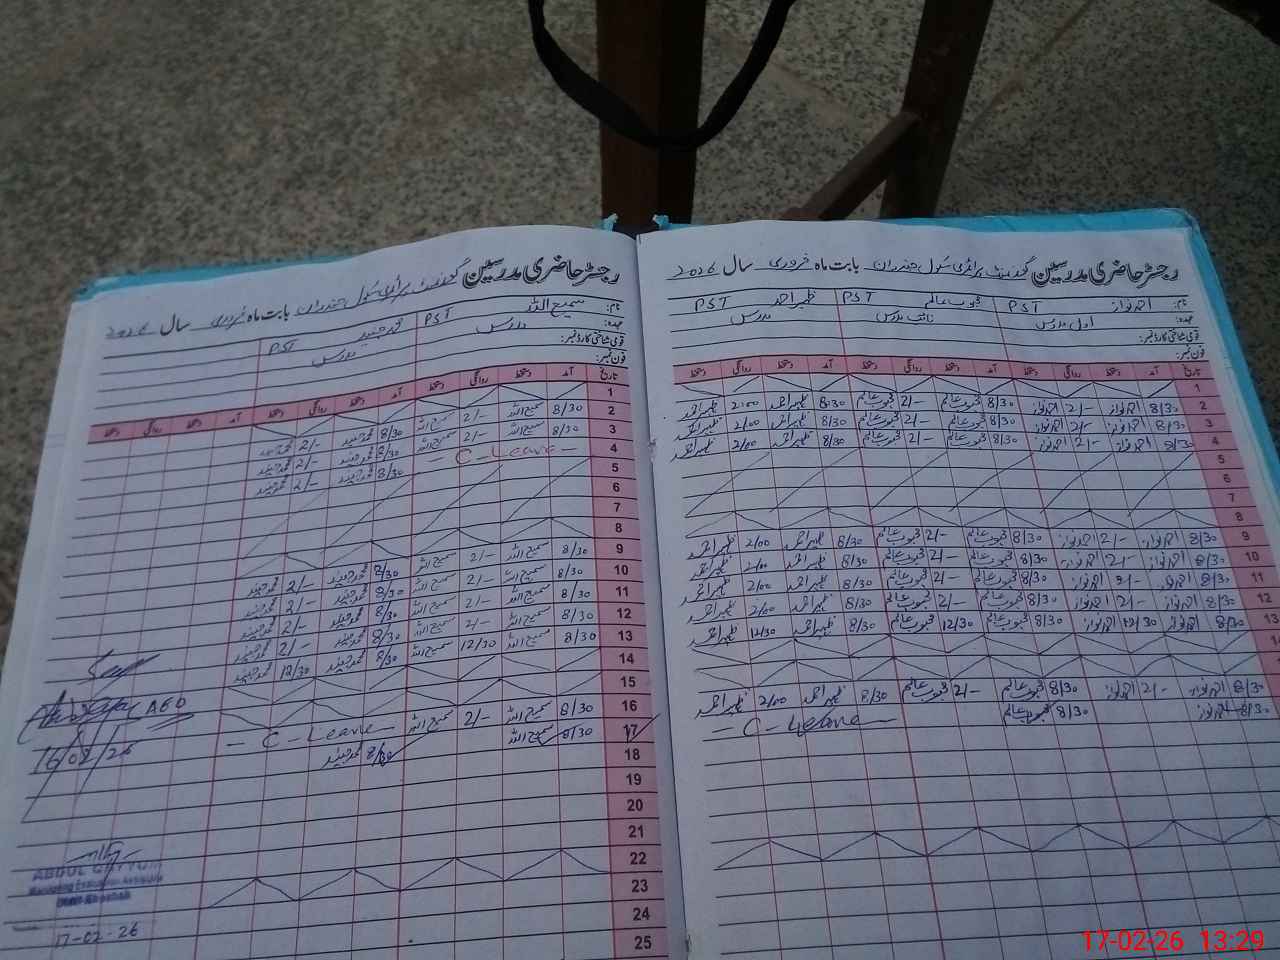 رجسٹر حاضری مدرسین گورنمنٹ پرائمری سکول بابت ماہ فروری سال 2026
نام: احمد نواز PST محبوب عالم PST ظہیر احمد PST
عہدہ: اول مدرس نائب مدرس مدرس
قومی شناختی کارڈ نمبر:
فون نمبر:
تاریخ آمد دستخط روانگی دستخط آمد دستخط روانگی دستخط آمد دستخط روانگی دستخط
1
2 8/30 احمد نواز 2/- احمد نواز 8/30 محبوب عالم 2/- محبوب عالم 8:30 ظہیر احمد 2:00 ظہیر احمد
3 8/30 احمد نواز 2/- احمد نواز 8/30 محبوب عالم 2/- محبوب عالم 8/30 ظہیر احمد 2/00 ظہیر احمد
4 8/30 احمد نواز 2/- احمد نواز 8/30 محبوب عالم 2/- محبوب عالم 8/30 ظہیر احمد 2/00 ظہیر احمد
5
6
7
8
9 8/30 احمد نواز 2/- احمد نواز 8/30 محبوب عالم 2/- محبوب عالم 8/30 ظہیر احمد 2/00 ظہیر احمد
10 8/30 احمد نواز 2/- احمد نواز 8/30 محبوب عالم 2/- محبوب عالم 8/30 ظہیر احمد 2/00 ظہیر احمد
11 8/30 احمد نواز 2/- احمد نواز 8/30 محبوب عالم 2/- محبوب عالم 8/30 ظہیر احمد 2/00 ظہیر احمد
12 8/30 احمد نواز 2/- احمد نواز 8/30 محبوب عالم 2/- محبوب عالم 8/30 ظہیر احمد 2/00 ظہیر احمد
13 8/30 احمد نواز 12/30 احمد نواز 8/30 محبوب عالم 12/30 محبوب عالم 8/30 ظہیر احمد 12/30 ظہیر احمد
8/30 احمد نواز 2/- احمد نواز 8/30 محبوب عالم 2/- محبوب عالم 8/30 ظہیر احمد 2/00 ظہیر احمد
8/30 احمد نواز 8/30 محبوب عالم - C - Leave -
رجسٹر حاضری مدرسین گورنمنٹ پرائمری سکول بابت ماہ فروری سال 2026
نام: سمیع اللہ PST محمد جنید PST
عہدہ: مدرس مدرس
قومی شناختی کارڈ نمبر:
فون نمبر:
تاریخ آمد دستخط روانگی دستخط آمد دستخط روانگی دستخط آمد دستخط روانگی دستخط
1
2 8/30 سمیع اللہ 2/- سمیع اللہ 8/30 محمد جنید 2/- محمد جنید
3 8/30 سمیع اللہ 2/- سمیع اللہ 8/30 محمد جنید 2/- محمد جنید
4 - C - Leave - 8/30 محمد جنید 2/- محمد جنید
5
6
7
8
9 8/30 سمیع اللہ 2/- سمیع اللہ 8/30 محمد جنید 2/- محمد جنید
10 8/30 سمیع اللہ 2/- سمیع اللہ 8/30 محمد جنید 2/- محمد جنید
11 8/30 سمیع اللہ 2/- سمیع اللہ 8/30 محمد جنید 2/- محمد جنید
12 8/30 سمیع اللہ 2/- سمیع اللہ 8/30 محمد جنید 2/- محمد جنید
13 8/30 سمیع اللہ 12/30 سمیع اللہ 8/30 محمد جنید 12/30 محمد جنید
14
15
16 8/30 سمیع اللہ 2/- سمیع اللہ - C - Leave -
17 8/30 سمیع اللہ 8/30 محمد جنید
18
19
20
21
22
23
24
25
AEO
16/02/26
ABDUL
17-02-26
17-02-26 13:29